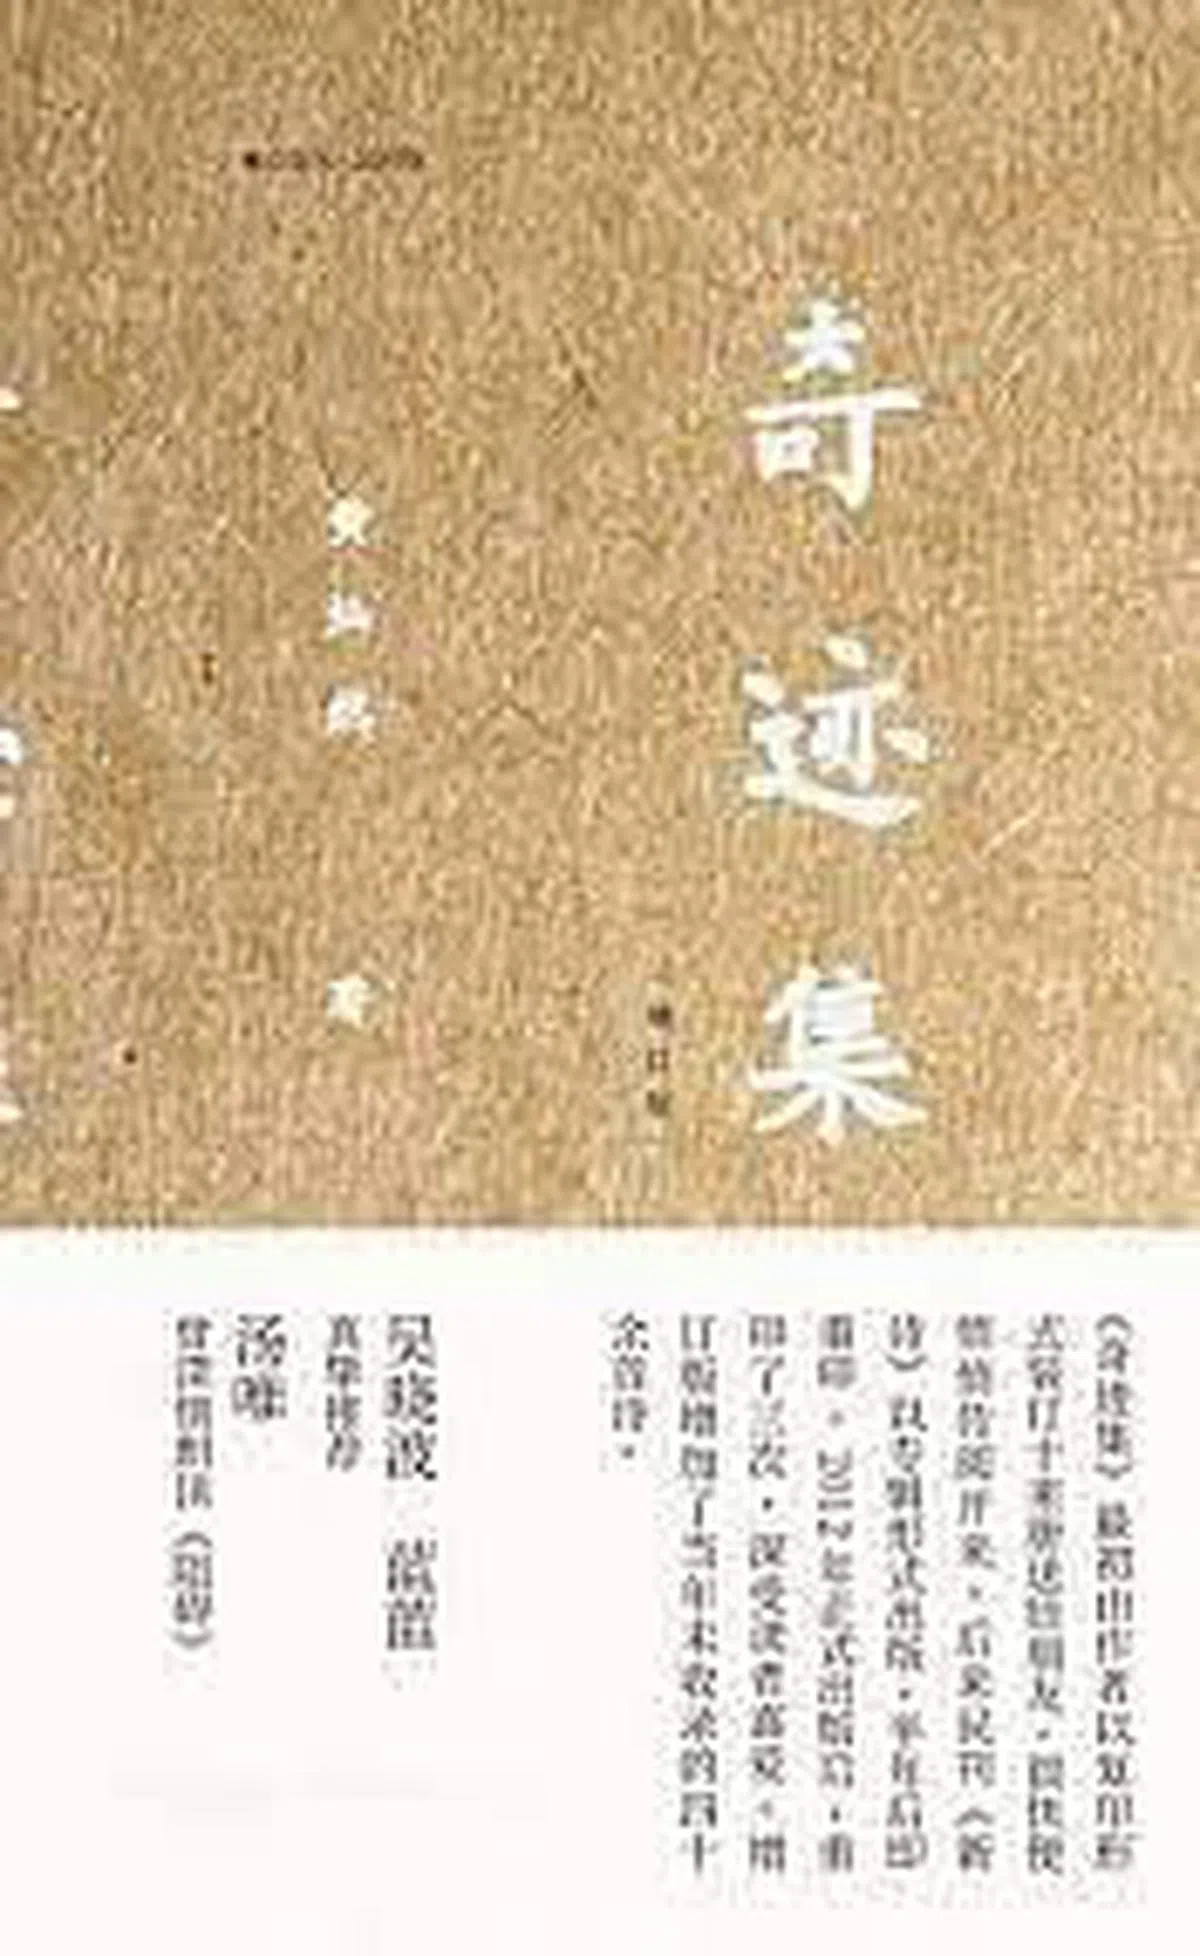 奇迹集
增订版
黄灿然 著
《奇迹集》最初由作者以复印形
式装订十来册送给朋友，很快便
悄悄传阅开来，后来民刊《新
诗》以专辑形式出版，半年后即
重印。2012年正式出版后，重
印了三次，深受读者喜爱。增
订版增加了当年未收录的四十
余首诗。
吴晓波
真挚推荐
汤唯
曾深情朗读